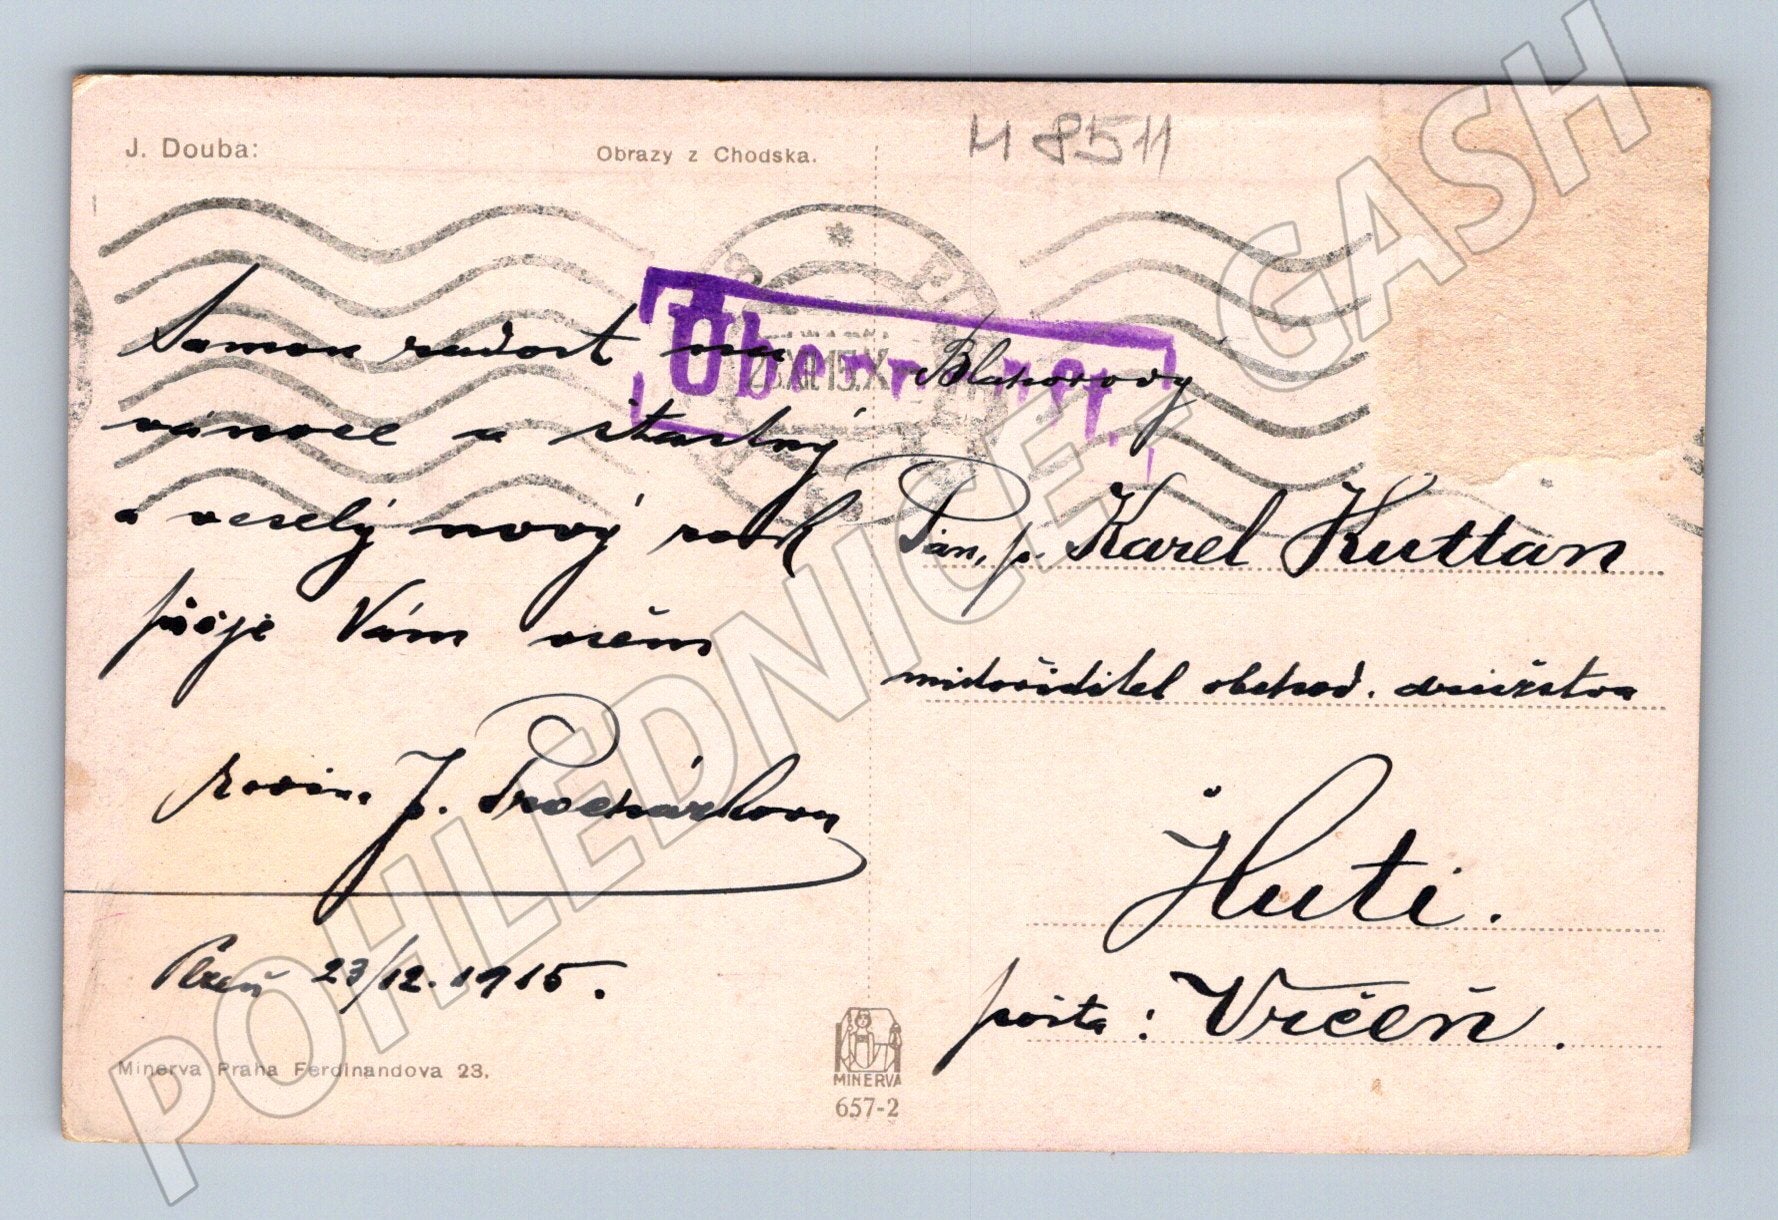 J. Douba:
Obrazy z Chodska.
H 8511
Samou radost na
vánoce a šťastný
a veselý nový rok
přeje Vám všem
rodina J. Procházkova
Plzeň 23/12. 1915.
Minerva Praha Ferdinandova 23.
MINERVA
657-2
Überprüft.
Blahorodý
Pan, p. Karel Kuttan
místořiditel obchod. družstva
Huti.
pošta: Vrčeň.
POHLEDNICE - GASH